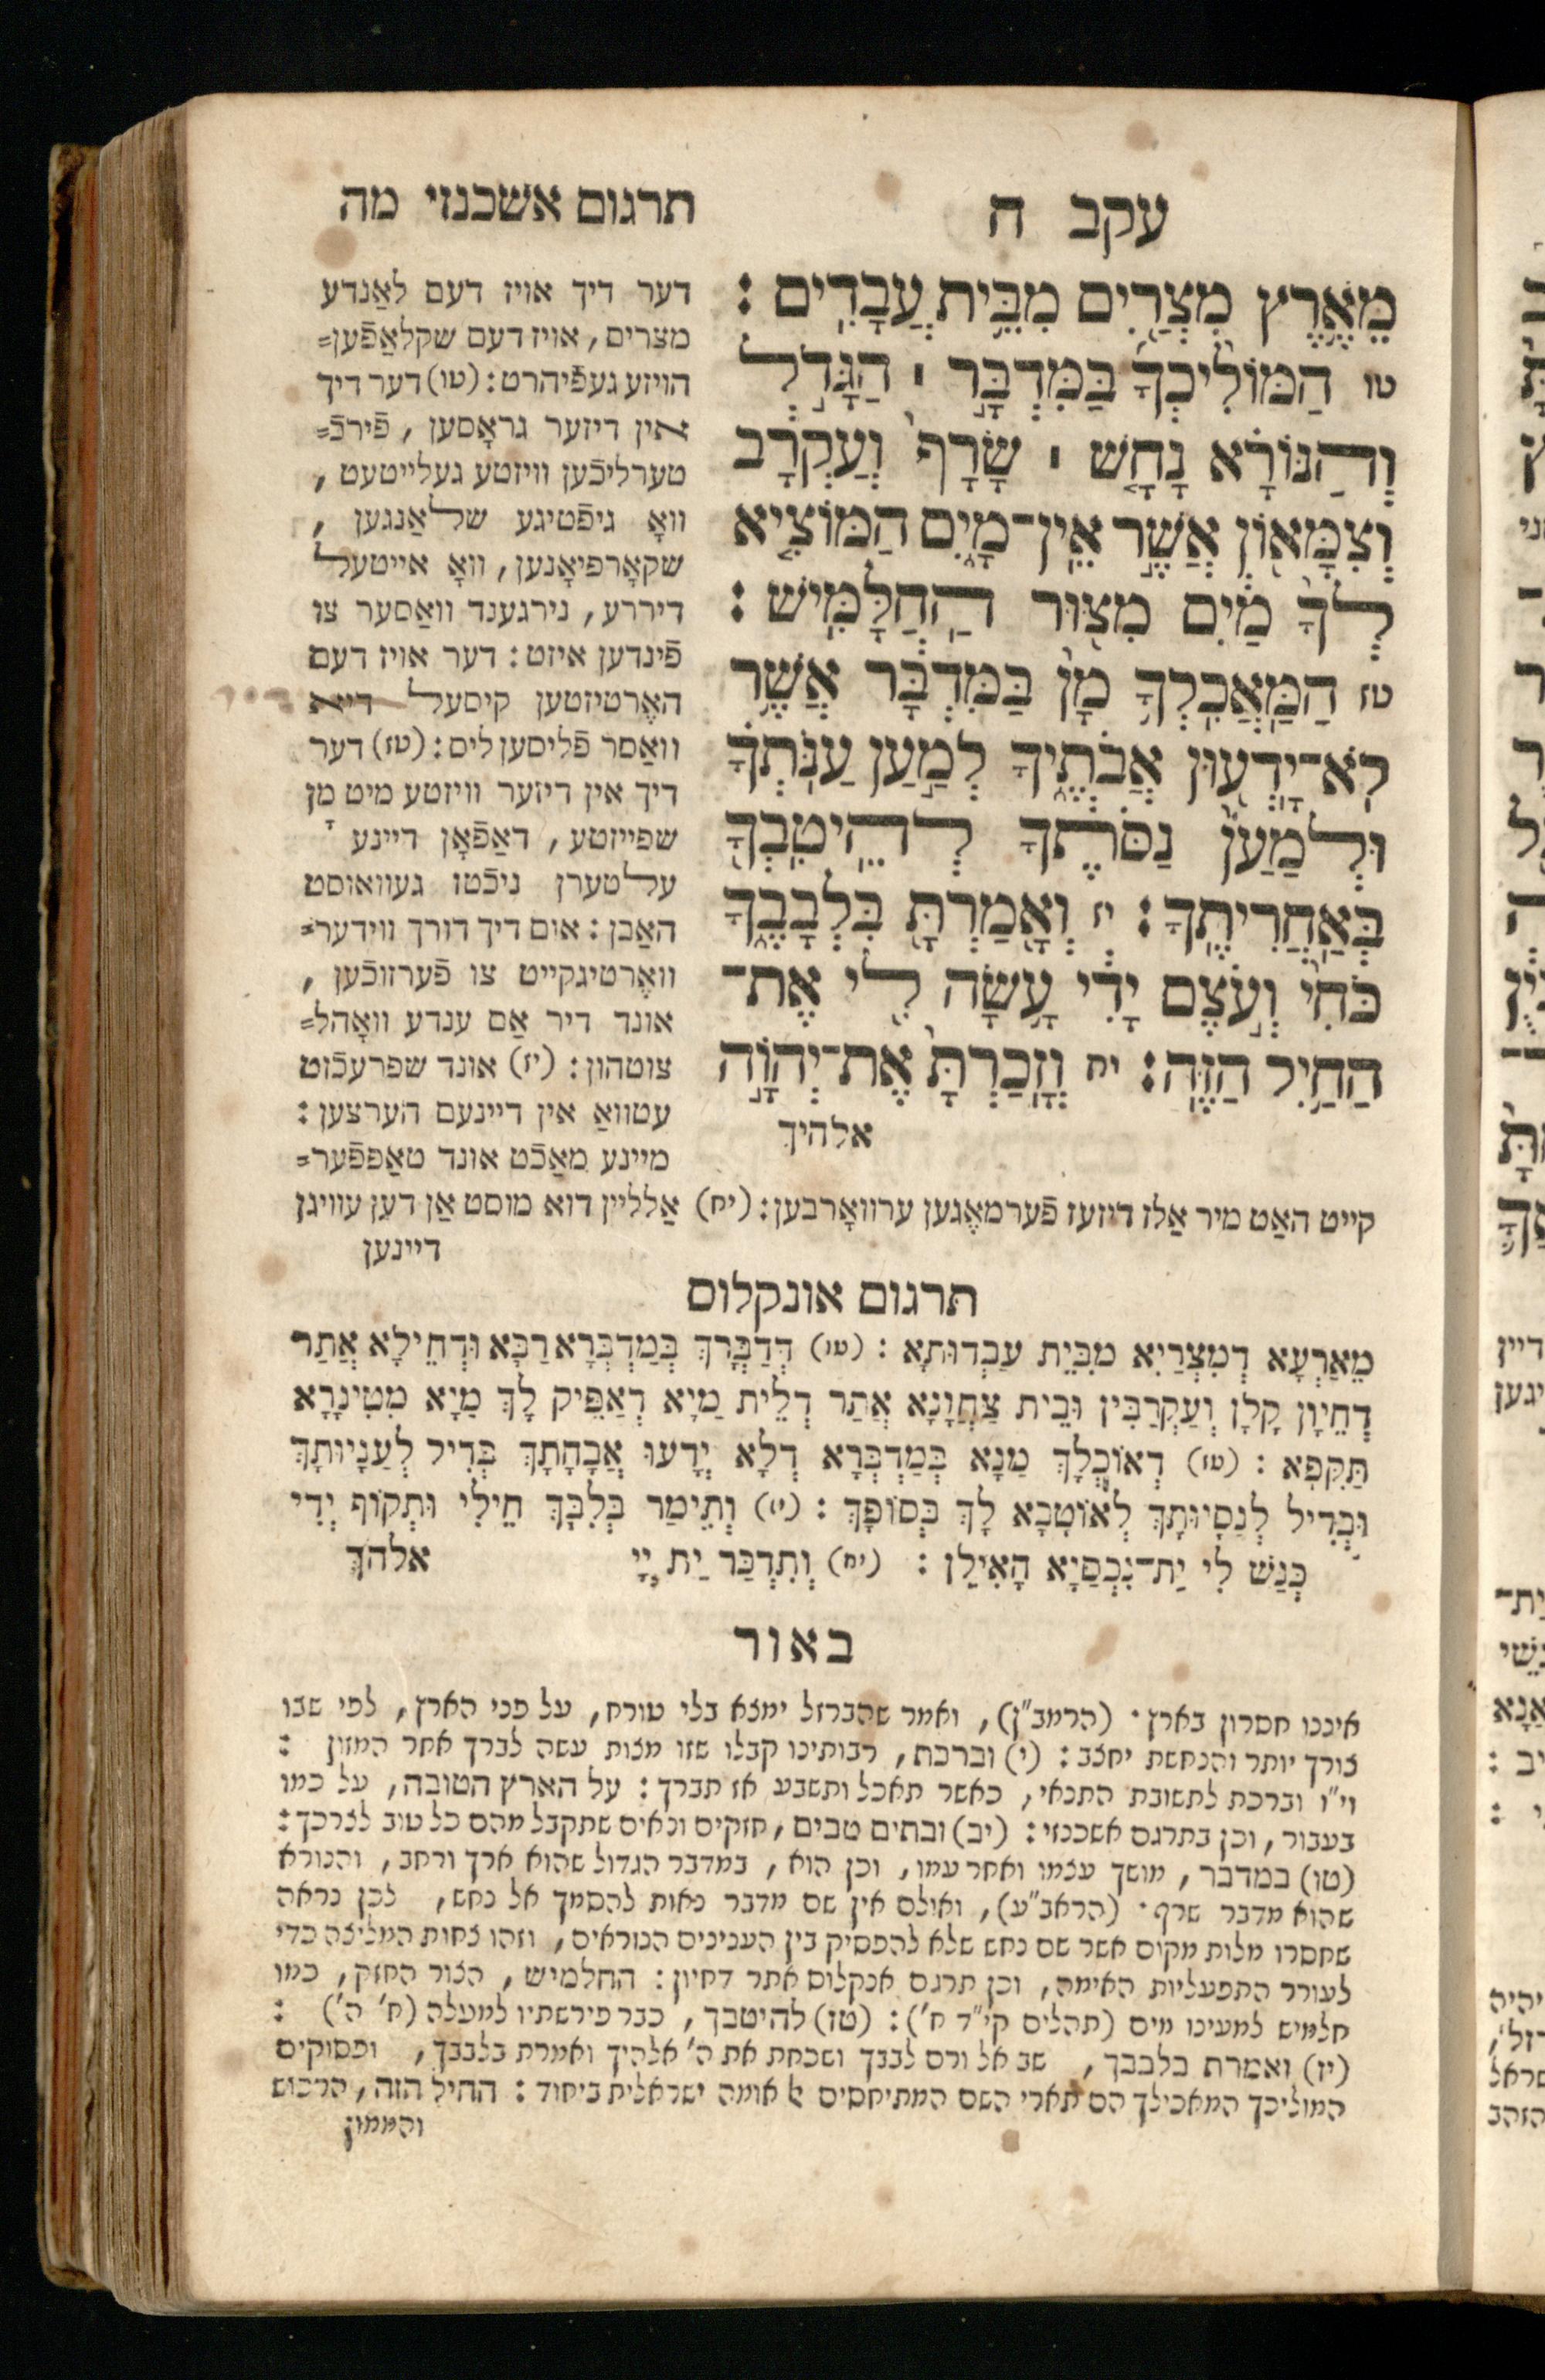 עקב ח
תרגום אשכנזי מה
מֵאֶ֥רֶץ מִצְרַ֖יִם מִבֵּ֥ית עֲבָדִֽים :
טו הַמּוֹלִ֨יכְךָ֜ בַּמִּדְבָּ֣ר ׀ הַגָּדֹ֣ל
וְהַנּוֹרָ֗א נָחָ֤שׁ ׀ שָׂרָף֙ וְעַקְרָ֔ב
וְצִמָּא֖וֹן אֲשֶׁ֣ר אֵֽין־מָ֑יִם הַמּוֹצִ֤יא
לְךָ֙ מַ֔יִם מִצּ֖וּר הַֽחַלָּמִֽישׁ :
טז הַמַּֽאֲכִֽלְךָ֥ מָן֙ בַּמִּדְבָּ֔ר אֲשֶׁ֥ר
לֹא־יָדְע֖וּן אֲבֹתֶ֑יךָ לְמַ֣עַן עַנֹּֽתְךָ֗
וּלְמַ֙עַן֙ נַסֹּתֶ֔ךָ לְהֵיטִֽבְךָ֖
בְּאַֽחֲרִיתֶֽךָ : יז וְאָמַרְתָּ֖ בִּלְבָבֶ֑ךָ
כֹּחִי֙ וְעֹ֣צֶם יָדִ֔י עָ֥שָׂה לִ֖י אֶת־
הַחַ֥יִל הַזֶּֽה : יח וְזָֽכַרְתָּ֙ אֶת־יְהֹוָ֣ה
אלהיך
דער דיך אויז דעם לאַנדע
מצרים , אויז דעם שקלאַפֿען=
הויזע געפֿיהרט : (טו) דער דיך
אין דיזער גראָסען , פֿירכֿ=
טערליכֿען וויזטע געלייטעט ,
וואָ גיפֿטיגע שלאַנגען ,
שקאָרפיאָנען , וואָ אייטעל
דיררע , נירגענד וואַסער צו
פֿינדען איזט : דער אויז דעם
האֶרטיזטען קיסעל
וואַסר פֿליסען ליס : (טז) דער
דיך אין דיזער וויזטע מיט מָן
שפייזטע , דאַפֿאָן דיינע
עלטערן ניכֿטז געוואוסט
האַבן : אום דיך דורך ווידער=
וואֶרטיגקייט צו פֿערזוכֿען ,
אונד דיר אַם ענדע וואָהל=
צוטהון : (יז) אונד שפרעכֿזט
עטוואַ אין דיינעם הערצען :
מיינע מאַכֿט אונד טאַפפֿער=
קייט האַט מיר אַלז דיזעז פֿערמאֶגען ערוואָרבען : (יח) אַלליין דוא מוסט אַן דען עוויגן
דיינען
תרגום אונקלוס
מֵאַרְעָא דְמִצְרַיִא מִבֵּית עַבְדוּתָא : (טו) דְדַבְּרָךְ בְּמַדְבְּרָא רַבָּא וּדְחֵילָא אֲתַר
דְחֵיוָן קָלָן וְעַקְרַבִּין וּבֵית צַחֲוָנָא אֲתַר דְלֵית מַיָא דְאַפֵּיק לָךְ מַיָא מִטִינָרָא
תַּקִּפָא : (טז) דְאוֹכְלָךְ מַנָא בְּמַדְבְּרָא דְלָא יְדָעוּ אֲבָהָתָךְ בְּדִיל לְעַנָיוּתָךְ
וּבְדִיל לְנַסָיוּתָךְ לְאוֹטָבָא לָךְ בְּסוֹפָךְ : (יז) וְתֵימַר בְּלִבָּךְ חֵילִי וּתְקוֹף יְדִי
כְּנַשׁ לִי יַת־נִכְסַיָא הָאִילֵן : (יח) וְתִדְכַּר יַת יְיָ אלהך
באור
איננו חסרון בארץ · (הרמב״ן) , ואמר שהברזל ימצא בלי טורח , על פני הארץ , לפי שבו
צורך יותר והנחשת יחצב : (י) וברכת , רבותינו קבלו שזו מצות עשה לברך אחר המזון :
וי״ו וברכת לתשובת התנאי , כאשר תאכל ותשבע אז תברך : על הארץ הטובה , על כמו
בעבור , וכן בתרגם אשכנזי : (יב) ובתים טבים , חזקים ונאים שתקבל מהם כל טוב לצרכך :
(טו) במדבר , מושך עצמו ואחר עמו , וכן הוא , במדבר הגדול שהוא ארך ורחב , והנורא
שהוא מדבר שרף · (הראב״ע) , ואולם אין שם מדבר נאות להסמך אל נחש , לכן נראה
שחסרו מלות מקום אשר שם נחש שלא להפסיק בין הענינים הנוראים , וזהו צחות המליצה כדי
לעורר התפעליות האימה , וכן תרגם אנקלוס אתר דחיון : החלמיש , הצור החזק , כמו
חלמיש למעינו מים (תהלים קי״ד ח׳) : (טז) להיטבך , כבר פירשתיו למעלה (ח׳ ה׳) :
(יז) ואמרת בלבבך , שב אל ורם לבבך ושכחת את ה׳ אלהיך ואמרת בלבבך , ופסוקים
המוליכך המאכילך הם תארי השם המתיחסים אל אומה ישראלית ביחוד : החיל הזה , הרכוש
והממון